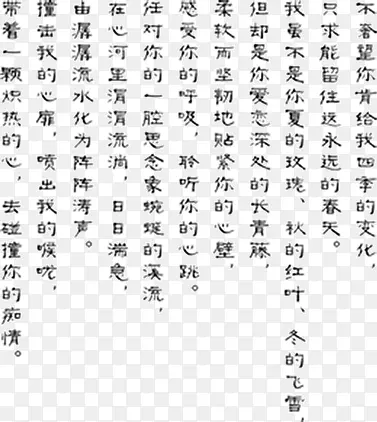 不奢望你肯给我四季的变化，
只求能留住远永远的春天。
我虽不是你夏的玫瑰、秋的红叶、冬的飞雪，
但却是你爱恋深处的长青藤，
柔软而坚韧地贴紧你的心壁，
感受你的呼吸，聆听你的心跳。
任对你的一腔思念象蜿蜒的溪流，
在心河里涓涓流淌，日日湍急，
由潺潺流水化为阵阵涛声。
撞击我的心扉，喷出我的喉咙，
带着一颗炽热的心，去碰撞你的痴情。